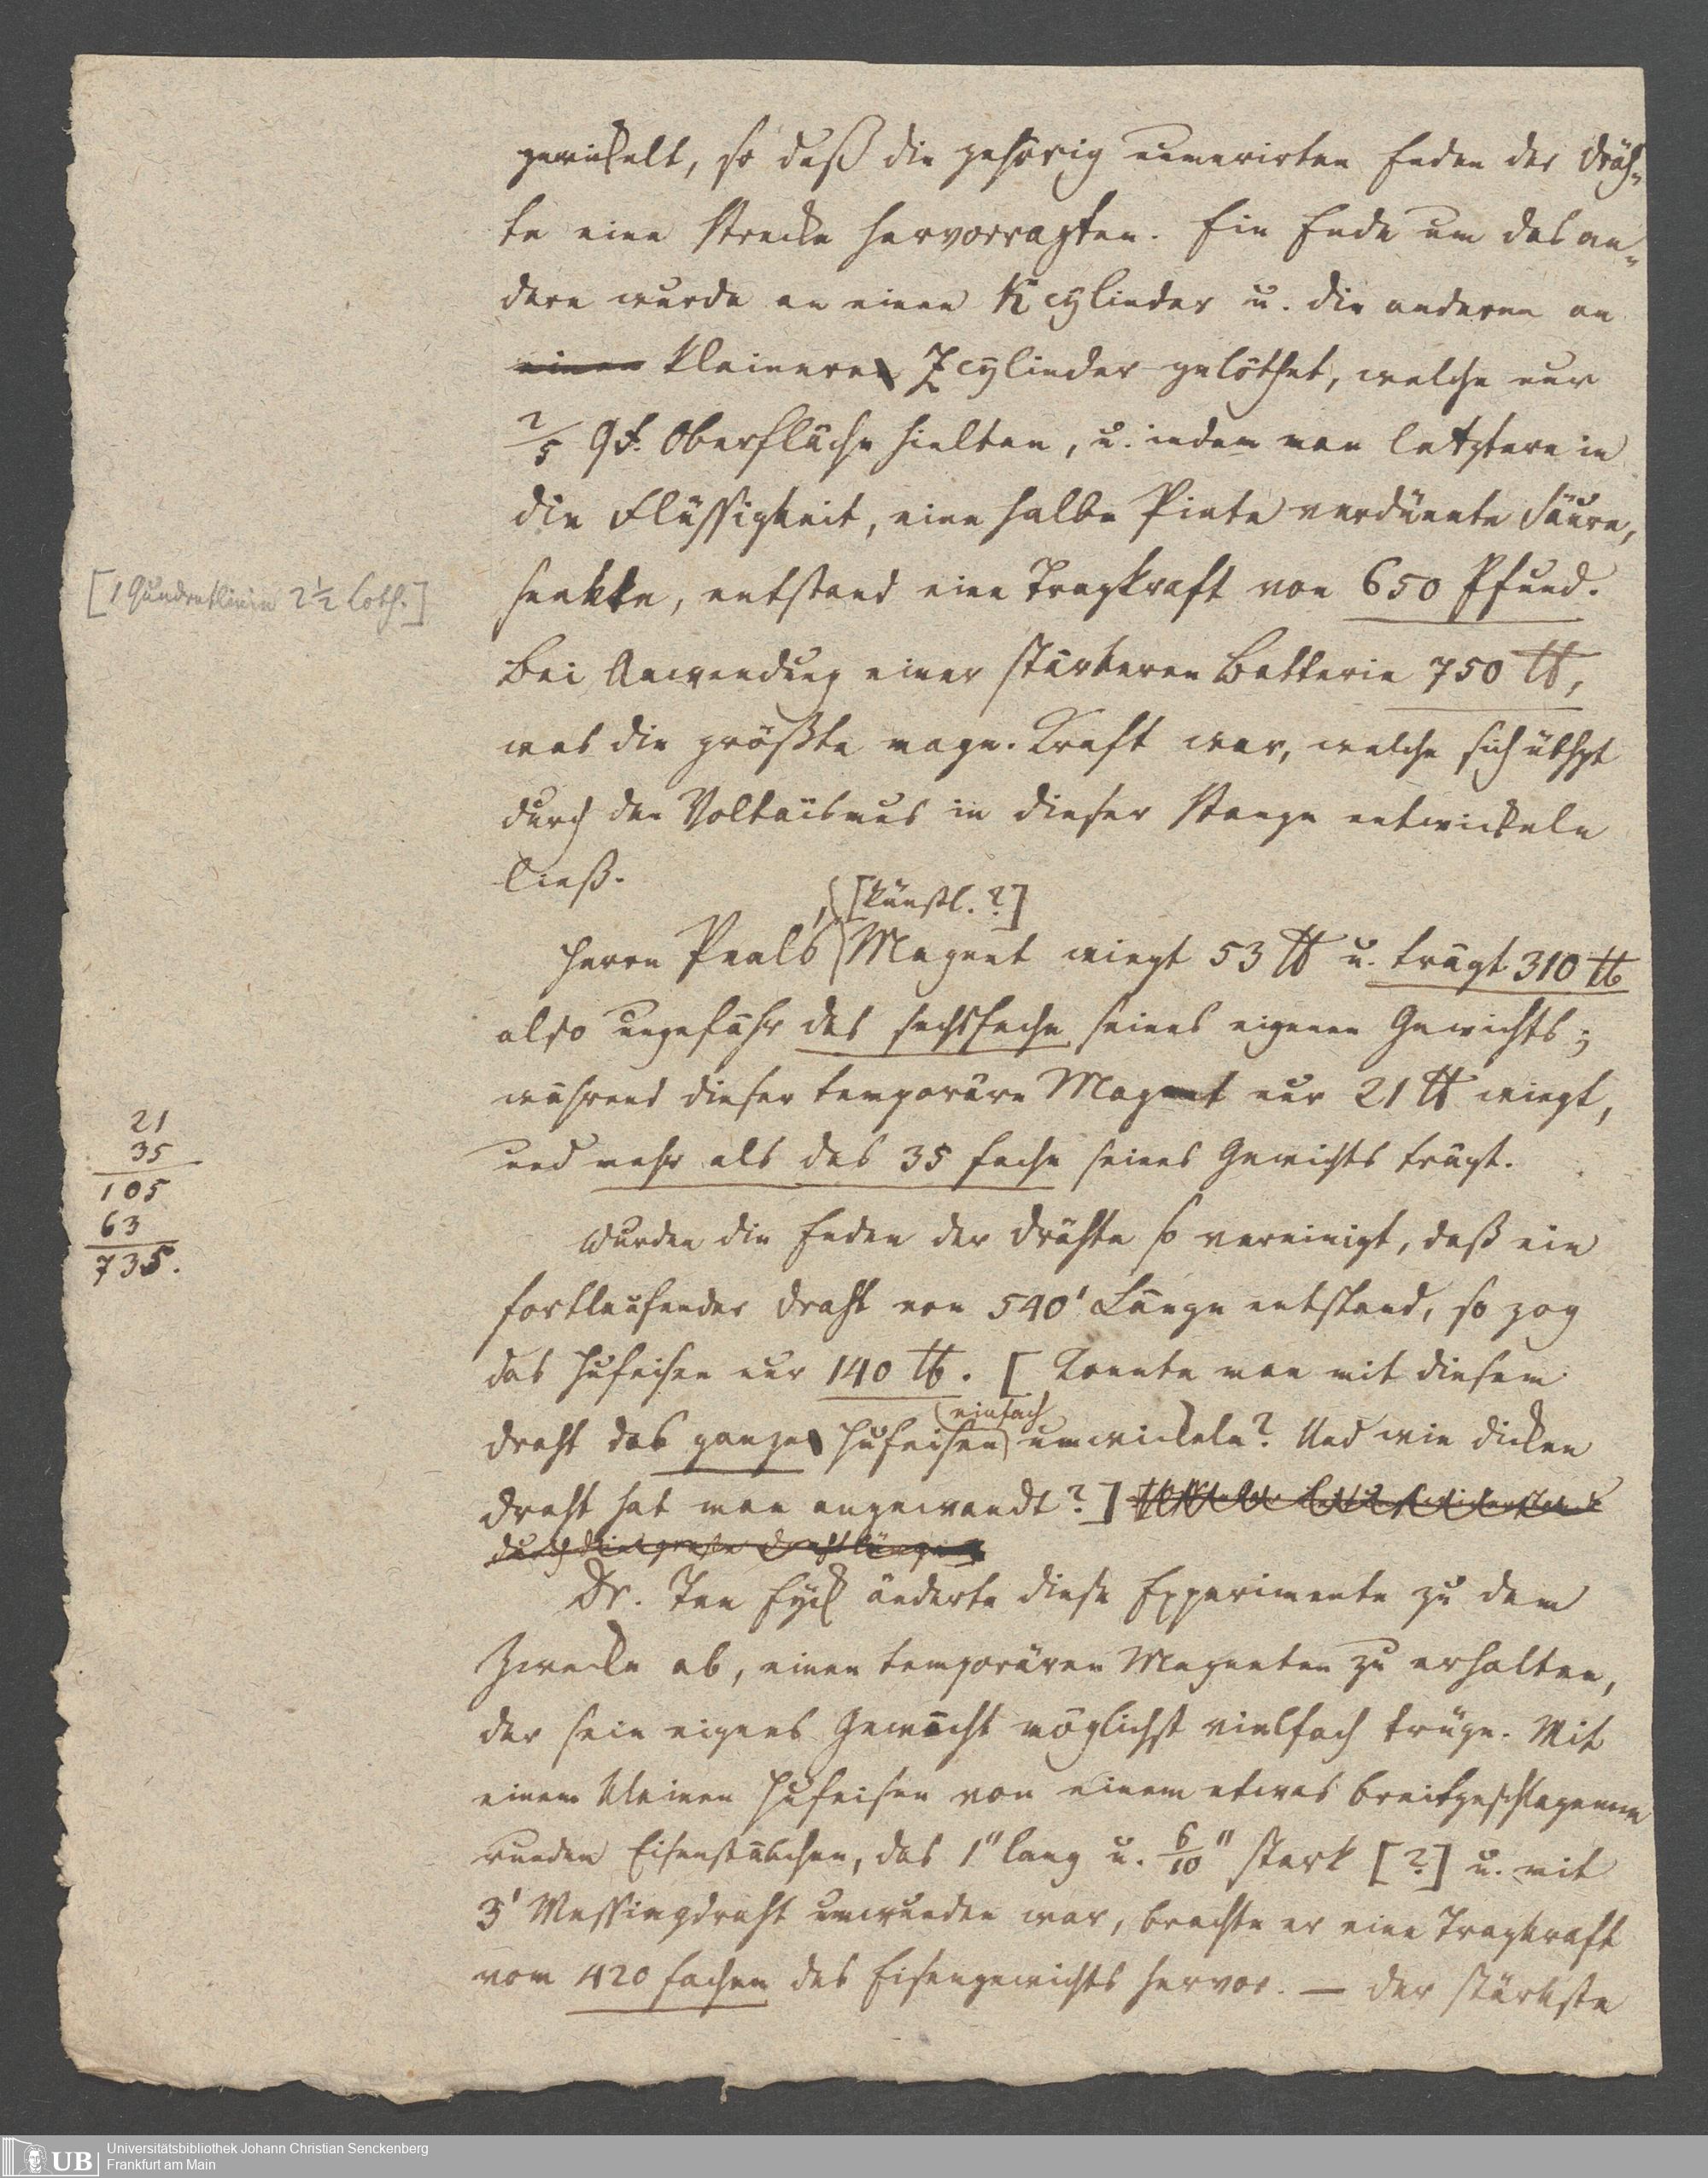 gewickelt, so daß die gehörig numerirten Enden der Dräh-
te eine Strecke hervorragten. Ein Ende um das an-
dere wurde an einen Kcylinder u. die anderen an
einen kleineren Zcylinder gelöthet, welche nur
2/5 QF. Oberfläche hielten, u. indem man letztere in
die Flüssigkeit, eine halbe Pinte verdünnte Säure,
[1 Quadratlinie 2½ Loth.]
senkte, entstand eine Tragkraft von 650 Pfund.
Bei Anwendung einer stärkeren Batterie 750 ℔,
was die größte magn. Kraft war, welche sich übhpt
durch den Voltaismus in dieser Stange entwickeln
ließ.
[künstl.?]
Herrn Peals Magnet wiegt 53 ℔ u. trägt 310 ℔
also ungefähr das sechsfache seines eigenen Gewichts;
während dieser temporäre Magnet nur 21 ℔ wiegt,
und mehr als das 35 fache seines Gewichts trägt.
21
35
105
63
735.
Wurden die Enden der Drähte so vereinigt, daß ein
fortlaufender Draht von 540' Länge entstand, so zog
das Hufeisen nur 140 ℔. [Konnte man mit diesem
einfach
Draht das ganze Hufeisen umwickeln? Und wie dicken
Draht hat man angewandt?]
durch die große Drahtlänge
Dr. Ten Eyck änderte diese Experimente zu dem
Zwecke ab, einen temporären Magneten zu erhalten,
der sein eigenes Gewicht möglichst vielfach trüge. Mit
einem kleinen Hufeisen von einem etwas breitgeschlagenen
runden Eisenstäbchen, das 1" lang u. 6/10" stark [?] u. mit
3' Messingdraht umwunden war, brachte er eine Tragkraft
vom 420 fachen des Eisengewichts hervor. — Der stärkste
UB
Universitätsbibliothek Johann Christian Senckenberg
Frankfurt am Main